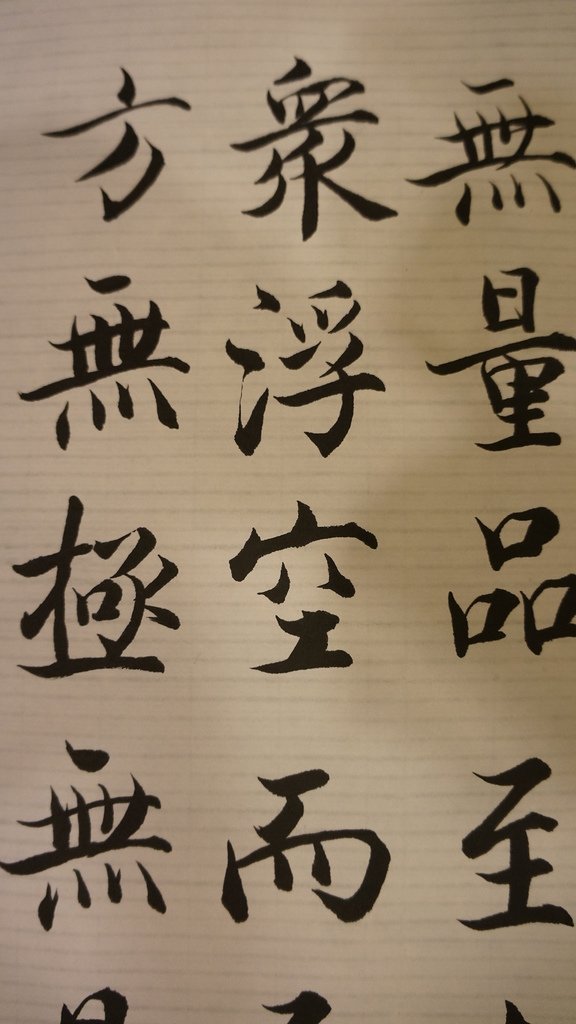 無量品至
衆浮空而
方無極無